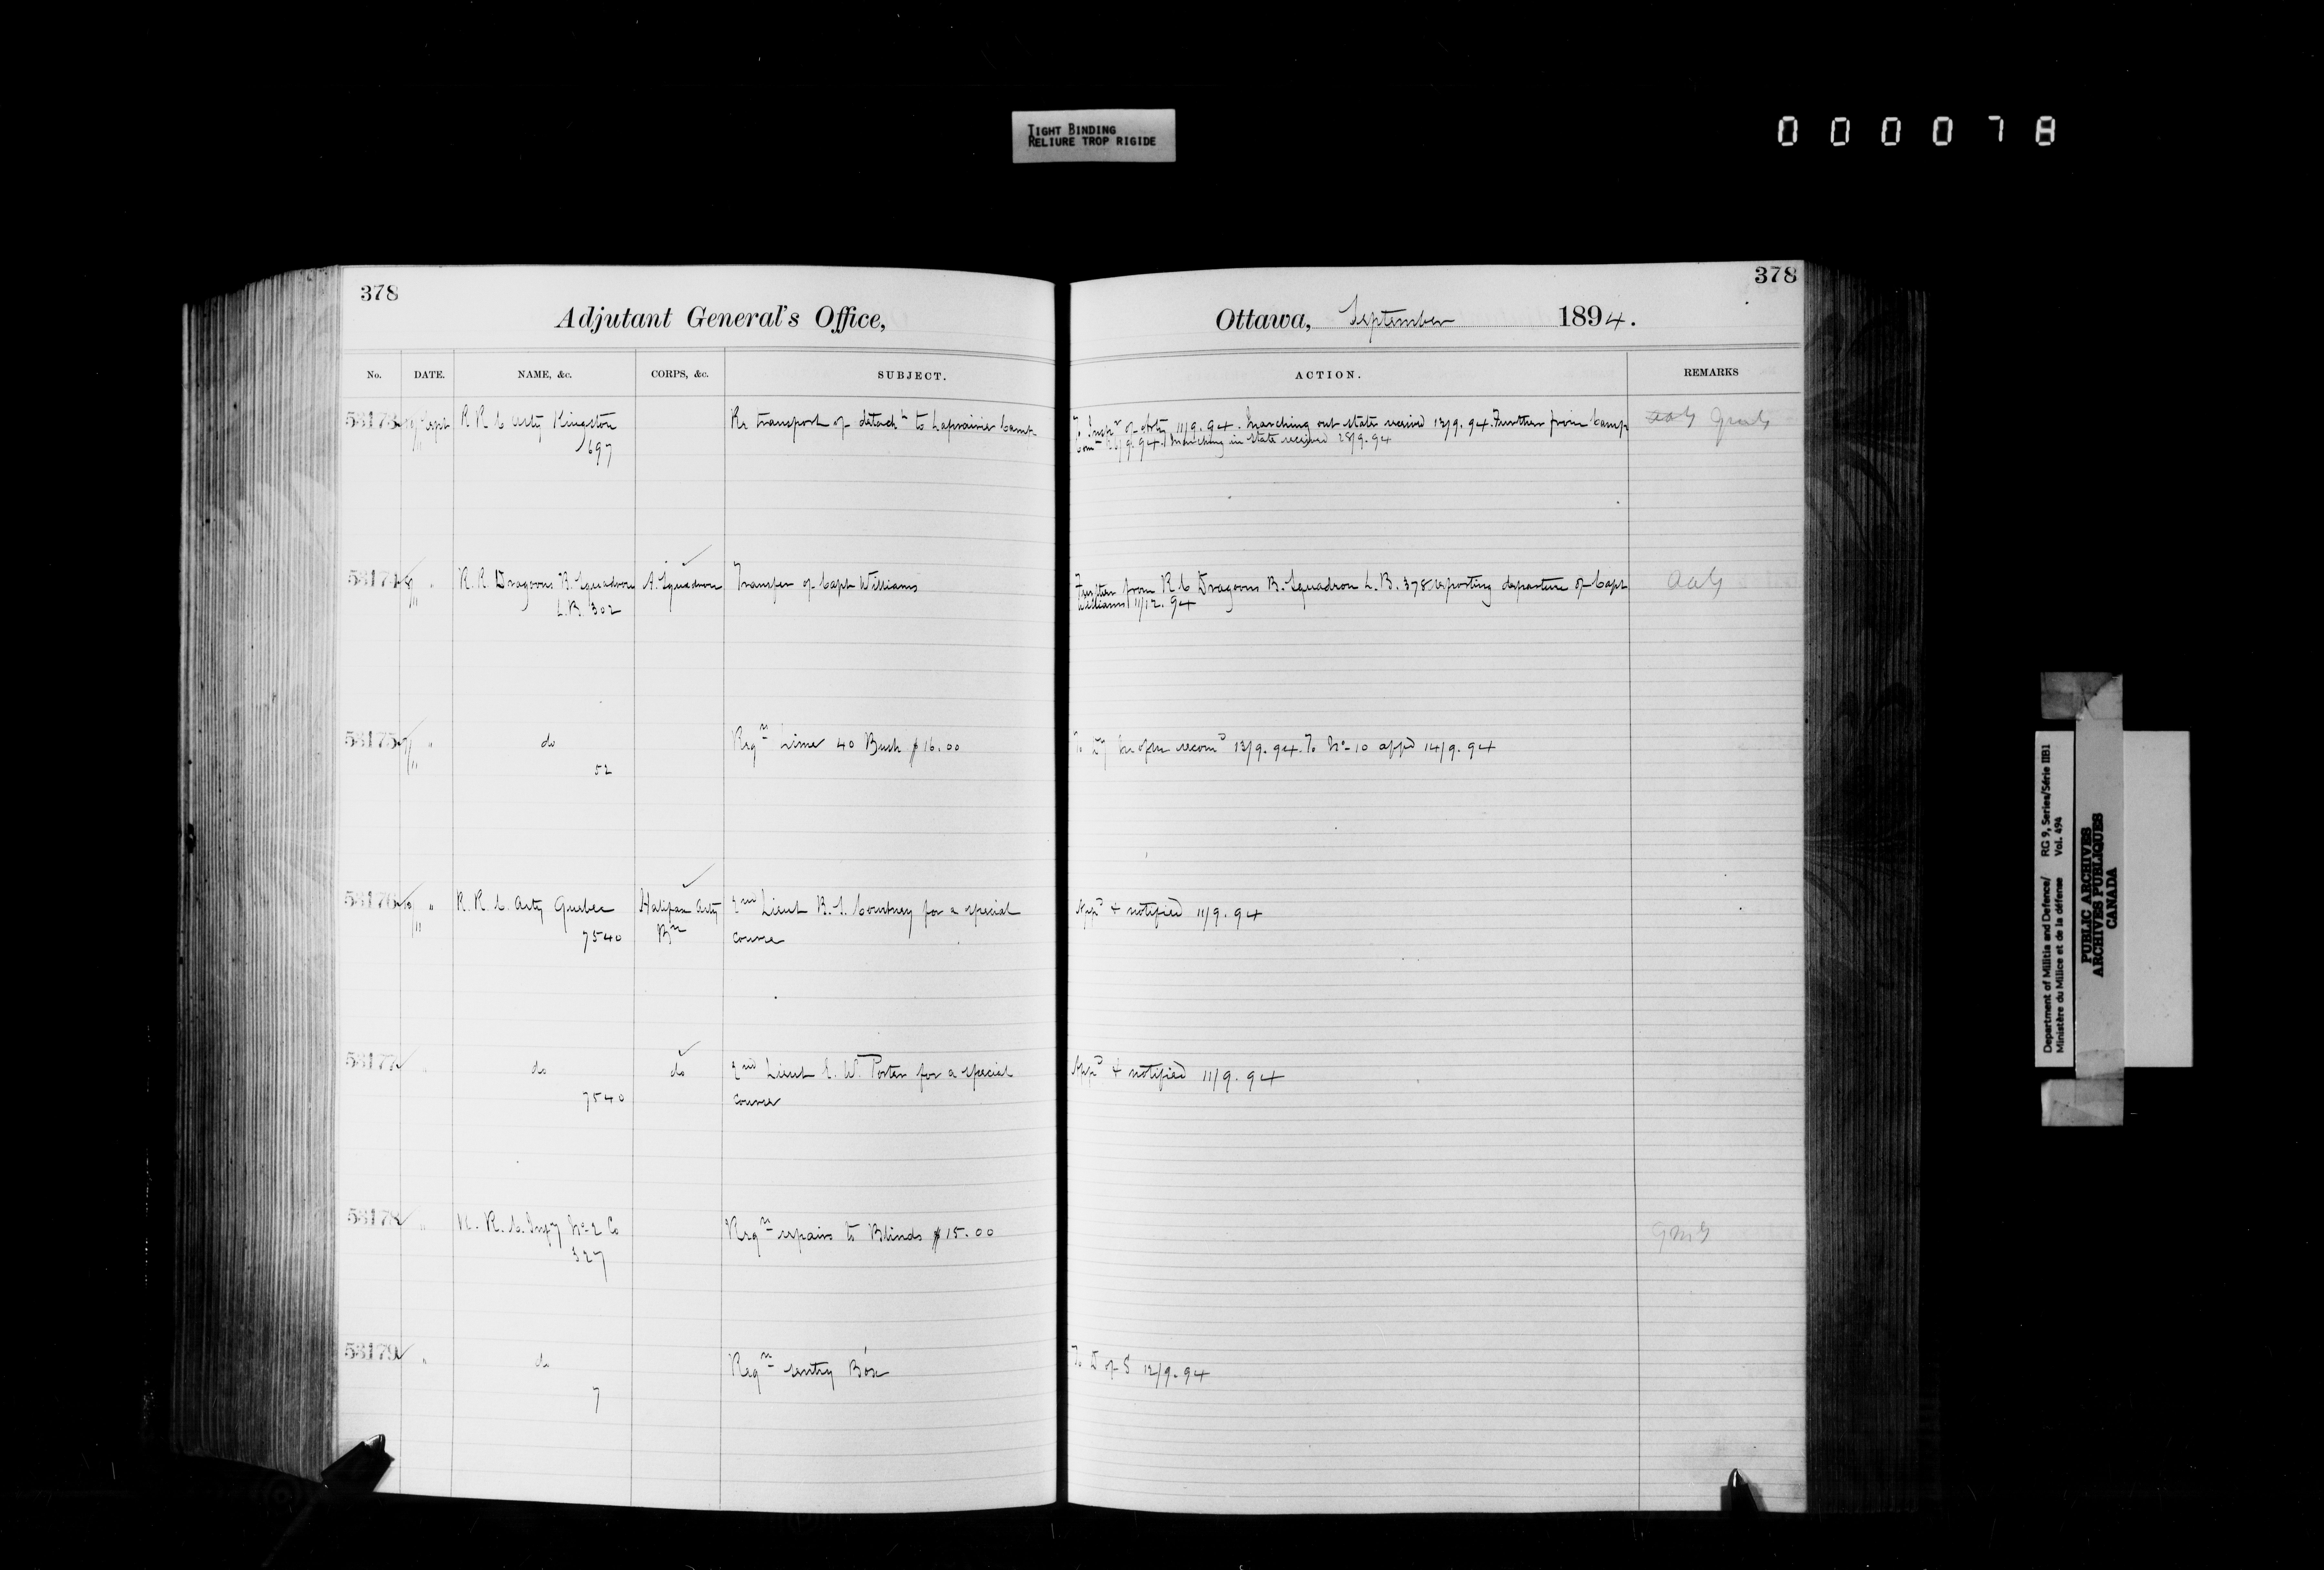 TIGHT BINDING
RELIURE TROP RIGIDE
000078
378
378
Adjutant General's Office,
Ottawa, September 1894.
No. DATE. NAME, &c. CORPS, &c. SUBJECT. ACTION. REMARKS
53173 Sept R R C Arty Kingston Re transport of detacht to Laprairie Camp To Inspr of Arty 11/9.94. Marching out state received 13/9.94. Further from Camp
697 Marching in state received 28/9.94
53174 8 " R.R. Dragoons B. Squadron A. Squadron Transfer of Capt Williams Further from R.C Dragoons B. Squadron L.B. 378 reporting departure of Capt AAG
11 L.B. 302 Williams 11/12.94
53175 " do Reqn Lime 40 Bush $16.00 recomd 13/9.94. To No 10 appd 14/9.94
11 52
53176 " R.R.C. Arty Quebec Halifax Arty 2nd Lieut B. Courtney for a special Appd & notified 11/9.94
11 7540 Bn course
53177 " do do 2nd Lieut W. Porter for a special Appd & notified 11/9.94
7540 course
53178 " R. R. C. Infy No 2 Co Reqn repairs to Blinds $15.00 QMG
327
53179 " do Reqn sentry Box To D of S 12/9.94
7
Department of Militia and Defence/ RG 9, Series/Série IIB1
Ministère du Milice et de la défense Vol. 494
PUBLIC ARCHIVES
ARCHIVES PUBLIQUES
CANADA